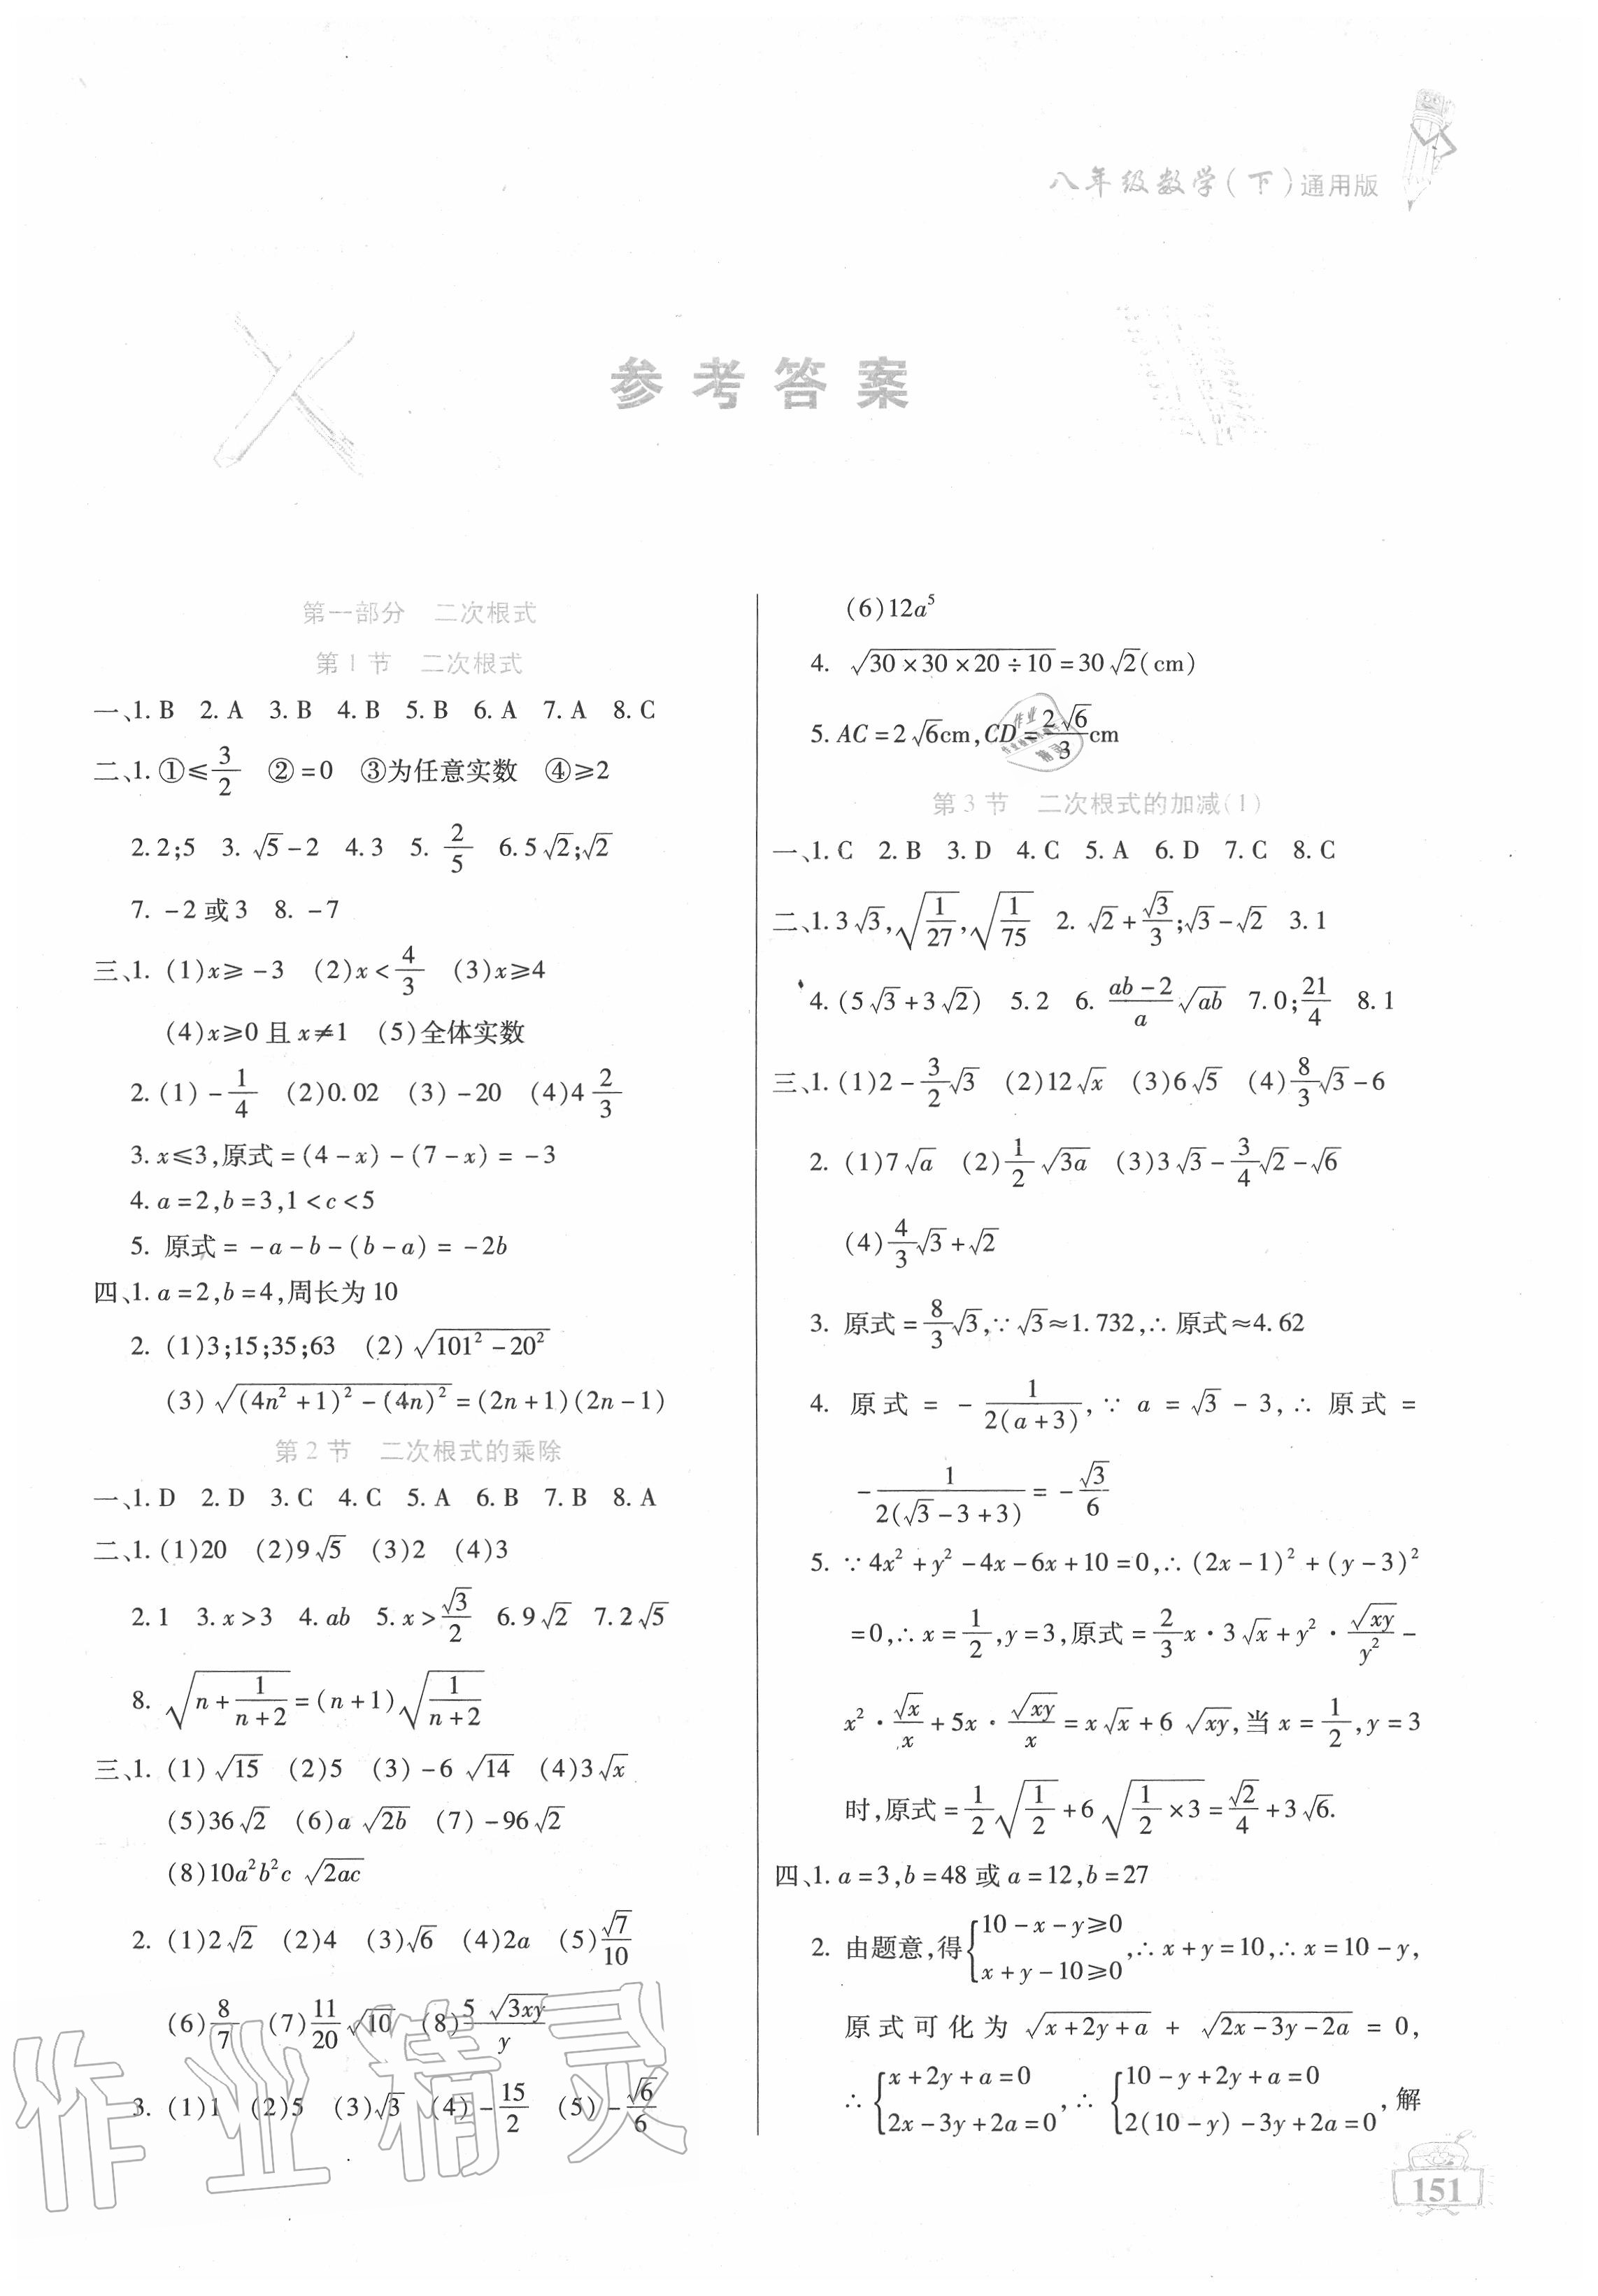 八年级数学(下)通用版
参考答案
第一部分 二次根式
第1节 二次根式
一、1. B 2. A 3. B 4. B 5. B 6. A 7. A 8. C
二、1. ①≤3/2 ②=0 ③为任意实数 ④≥2
2. 2;5 3. √5-2 4. 3 5. 2/5 6. 5√2;√2
7. -2或3 8. -7
三、1. (1)x≥-3 (2)x<4/3 (3)x≥4
(4)x≥0且x≠1 (5)全体实数
2. (1)-1/4 (2)0.02 (3)-20 (4)4 2/3
3. x≤3,原式=(4-x)-(7-x)=-3
4. a=2,b=3,1<c<5
5. 原式=-a-b-(b-a)=-2b
四、1. a=2,b=4,周长为10
2. (1)3;15;35;63 (2)√(101²-20²)
(3)√((4n²+1)²-(4n)²)=(2n+1)(2n-1)
第2节 二次根式的乘除
一、1. D 2. D 3. C 4. C 5. A 6. B 7. B 8. A
二、1. (1)20 (2)9√5 (3)2 (4)3
2. 1 3. x>3 4. ab 5. x>√3/2 6. 9√2 7. 2√5
8. √(n+1/(n+2))=(n+1)√(1/(n+2))
三、1. (1)√15 (2)5 (3)-6√14 (4)3√x
(5)36√2 (6)a√(2b) (7)-96√2
(8)10a²b²c√(2ac)
2. (1)2√2 (2)4 (3)√6 (4)2a (5)√7/10
(6)8/7 (7)11/20√10 (8)5√(3xy)/y
3. (1)1 (2)5 (3)√3 (4)-15/2 (5)-√6/6
(6)12a⁵
4. √(30×30×20÷10)=30√2(cm)
5. AC=2√6cm,CD=2√6/3cm
第3节 二次根式的加减(1)
一、1. C 2. B 3. D 4. C 5. A 6. D 7. C 8. C
二、1. 3√3,√(1/27),√(1/75) 2. √2+√3/3;√3-√2 3. 1
4. (5√3+3√2) 5. 2 6. (ab-2)/a√(ab) 7. 0;21/4 8. 1
三、1. (1)2-3/2√3 (2)12√x (3)6√5 (4)8/3√3-6
2. (1)7√a (2)1/2√(3a) (3)3√3-3/4√2-√6
(4)4/3√3+√2
3. 原式=8/3√3,∵√3≈1.732,∴原式≈4.62
4. 原式=-1/(2(a+3)),∵a=√3-3,∴原式=
-1/(2(√3-3+3))=-√3/6
5. ∵4x²+y²-4x-6x+10=0,∴(2x-1)²+(y-3)²
=0,∴x=1/2,y=3,原式=2/3x·3√x+y²·√(xy)/y²-
x²·√x/x+5x·√(xy)/x=x√x+6√(xy),当x=1/2,y=3
时,原式=1/2√(1/2)+6√(1/2×3)=√2/4+3√6.
四、1. a=3,b=48或a=12,b=27
2. 由题意,得{10-x-y≥0 x+y-10≥0,∴x+y=10,∴x=10-y,
原式可化为√(x+2y+a)+√(2x-3y-2a)=0,
∴{x+2y+a=0 2x-3y+2a=0,∴{10-y+2y+a=0 2(10-y)-3y+2a=0,解
151
作业精灵